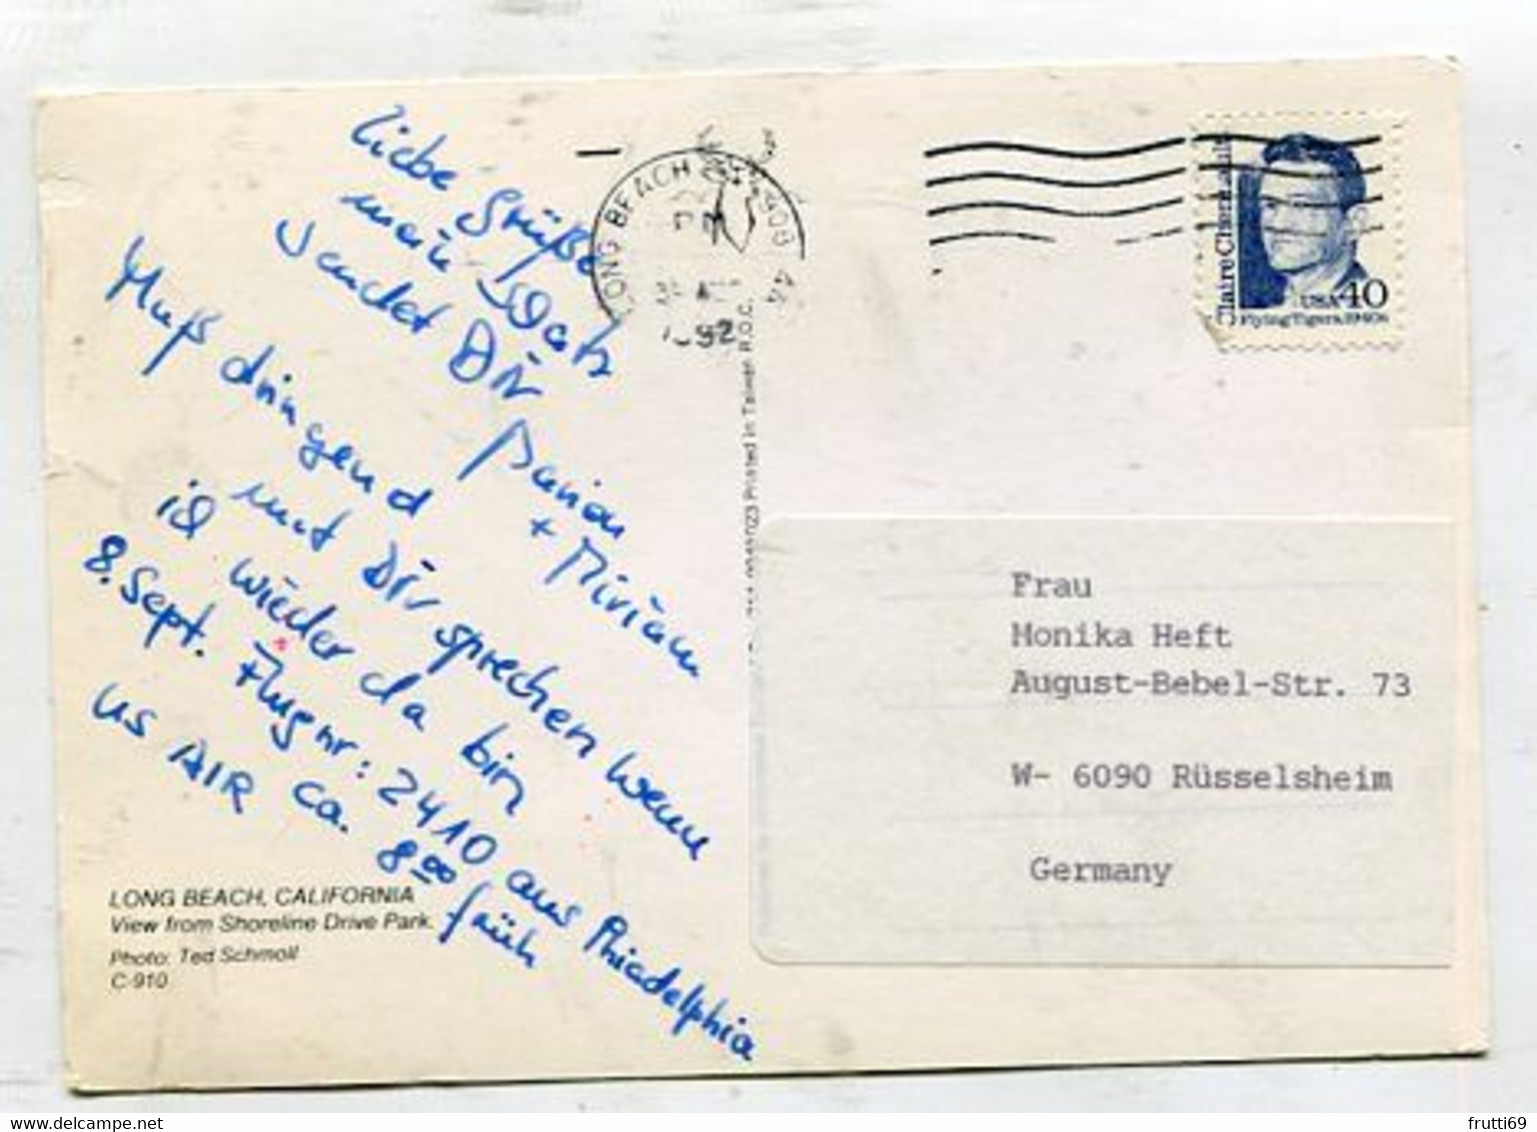 Liebe Grüße
mein Schatz
sendet Dir Marion
+ Miriam
Muß dringend
mit Dir sprechen wenn
ich wieder da bin
8. Sept. Flugnr: 2410 aus Phiadelphia
US AIR ca. 8⁰⁰ früh
LONG BEACH, CALIFORNIA
View from Shoreline Drive Park.
Photo: Ted Schmoll
C-910
LONG BEACH
PM
1992
Printed in Taiwan R.O.C.
Claire Chennault
USA 40
Flying Tigers, 1940s
Frau
Monika Heft
August-Bebel-Str. 73
W- 6090 Rüsselsheim
Germany
frutti69